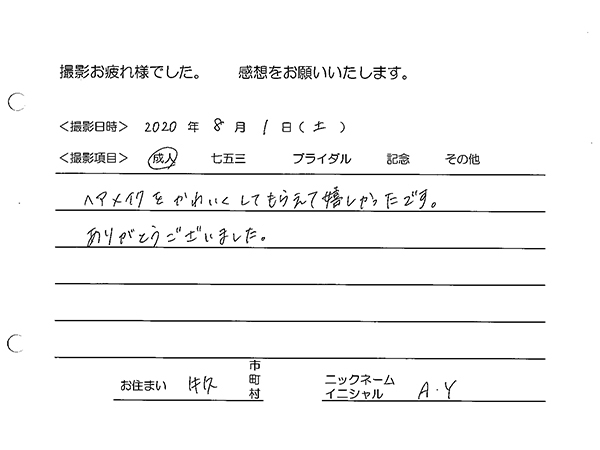 撮影お疲れ様でした。 感想をお願いいたします。
<撮影日時> 2020 年 8 月 1 日 ( 土 )
<撮影項目> 成人 七五三 ブライダル 記念 その他
ヘアメイクをかわいくしてもらえて嬉しかったです。
ありがとうございました。
お住まい 市町村
ニックネーム
イニシャル A.Y